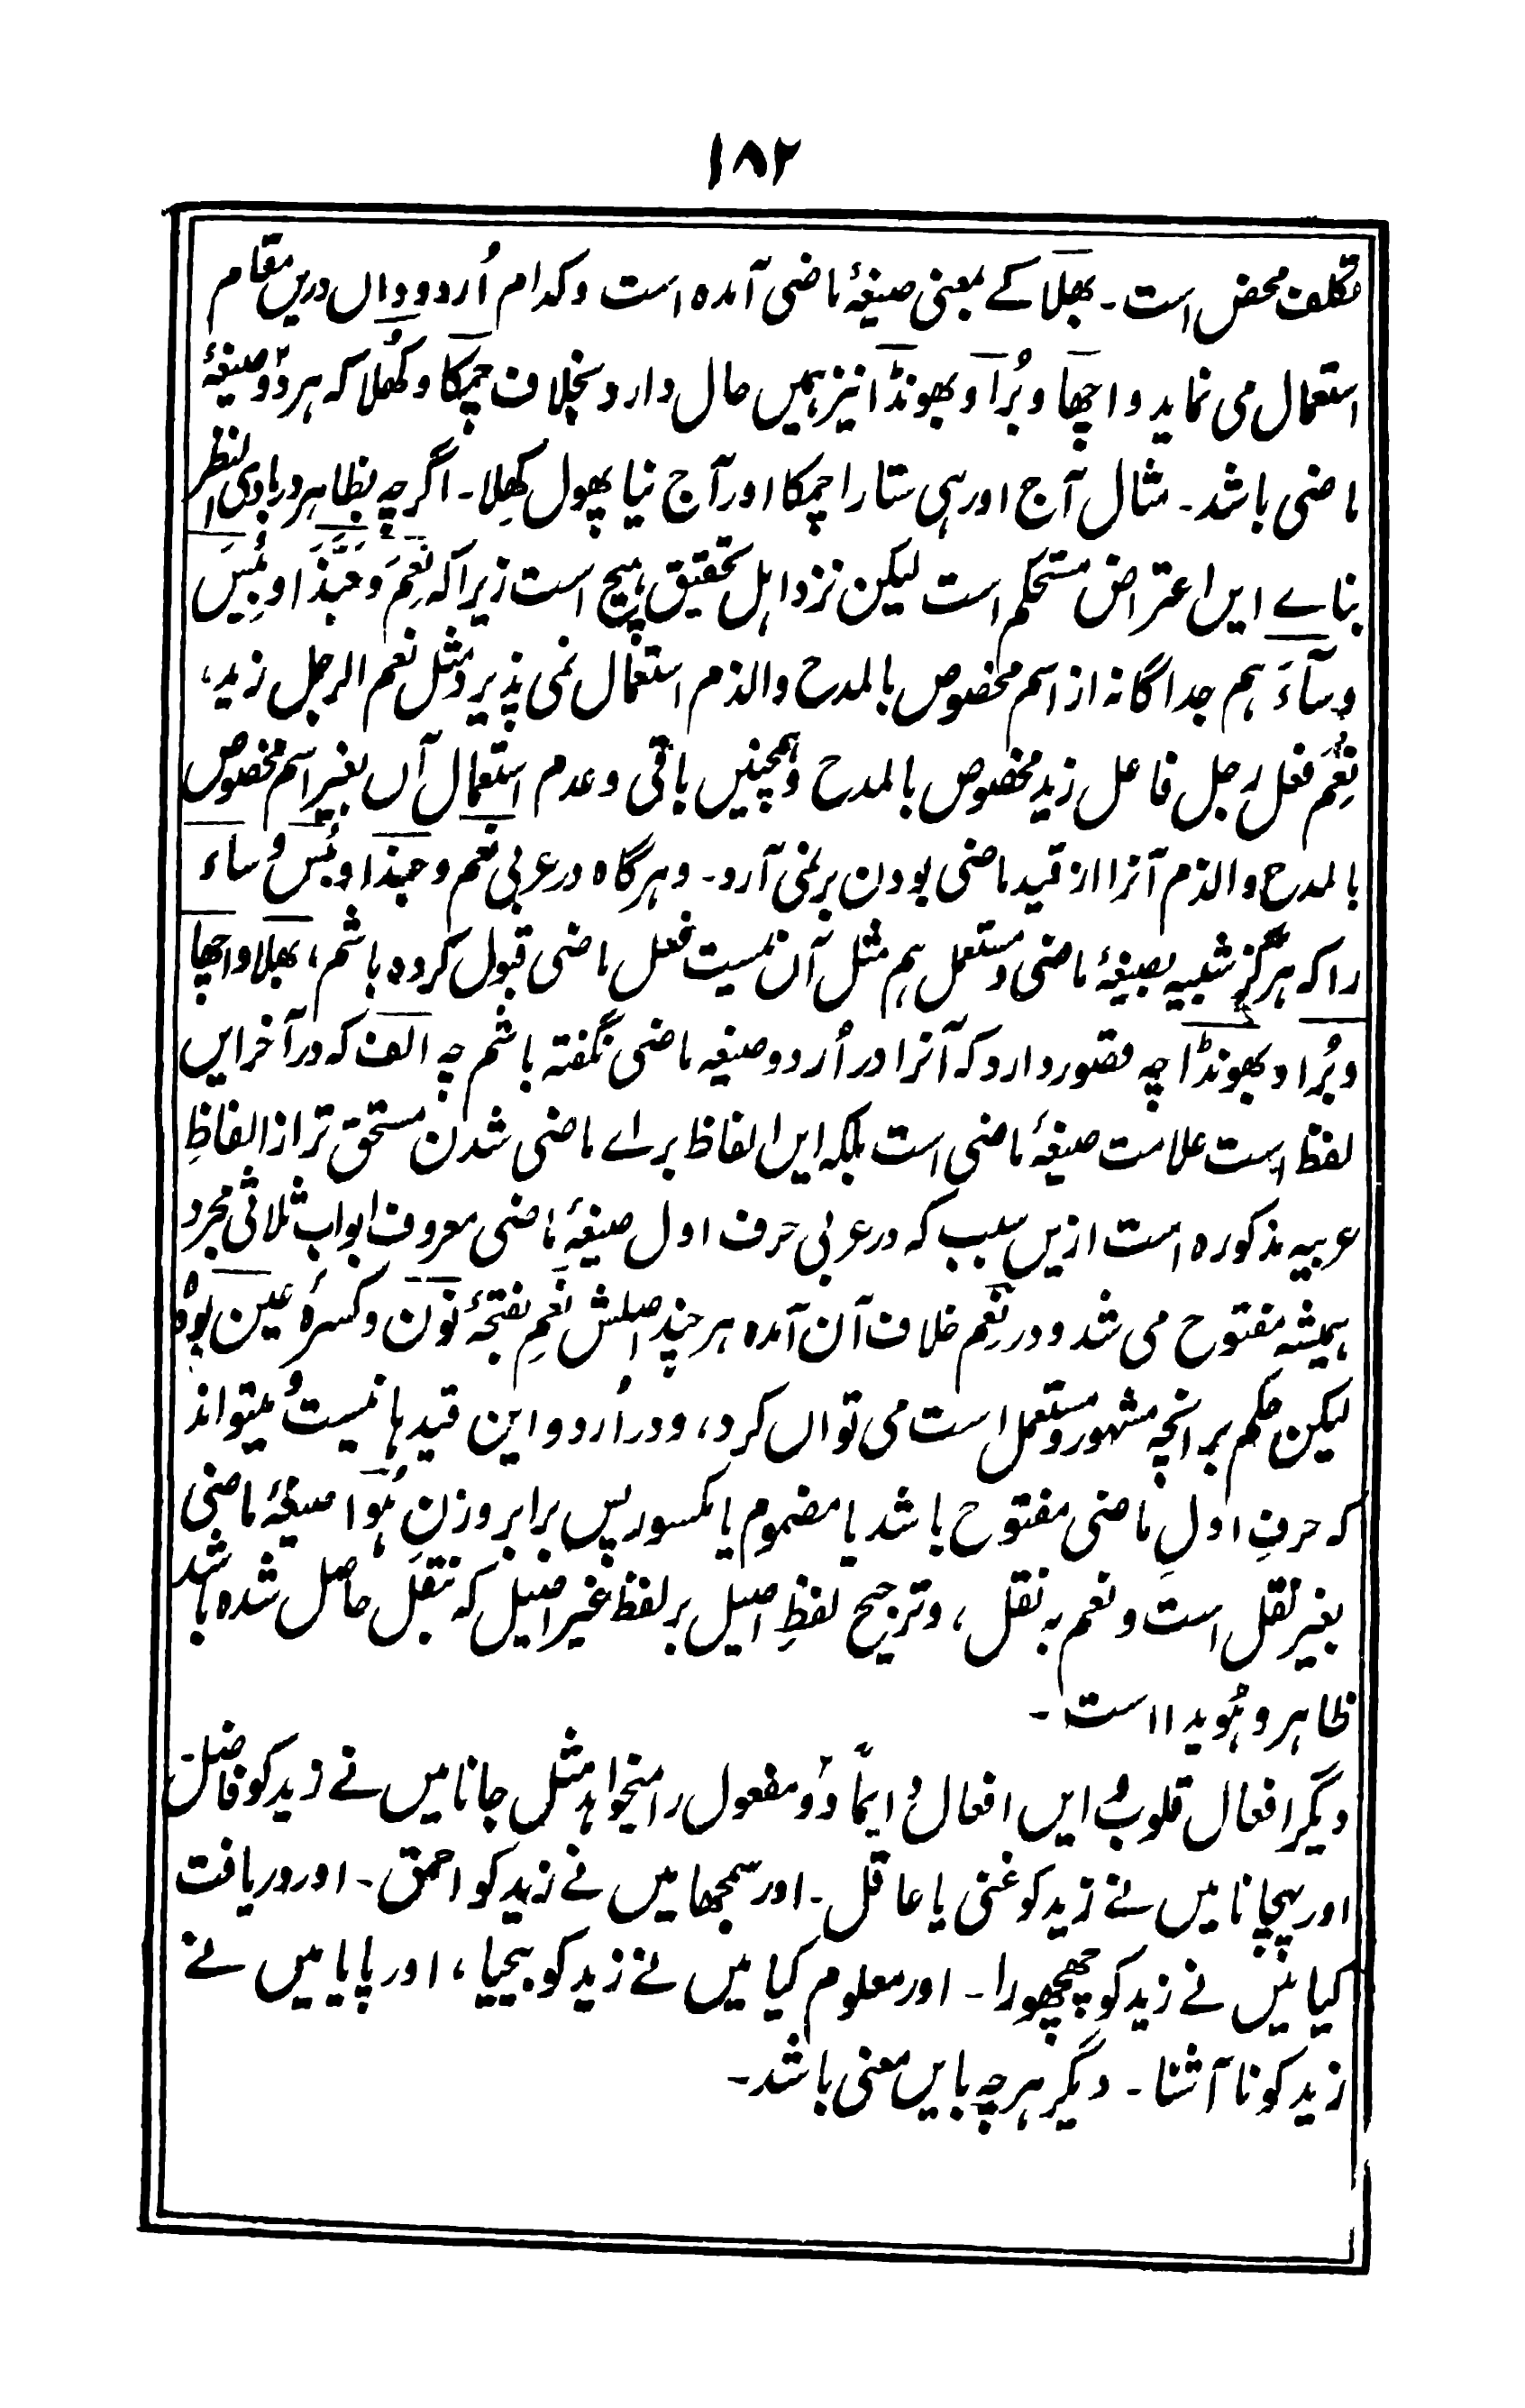 ۱۸۲
تکلف محض است۔ بھلا کے بمعنی صیغۂ ماضی آمدہ است و کدام اُردوداں دریں مقام
استعمال می نماید و اچھا و بُرا و بھونڈا نیز ہمیں حال دارد بخلاف چمکا و کھُلا کہ ہر دو صیغۂ
ماضی باشد۔ مثال آج اور ہی ستارا چمکا اور آج نیا پھول کھِلا۔ اگرچہ بظاہر در بادی النظر
بناے ایں اعتراض مستحکم است لیکن نزد اہل تحقیق ہیچ است زیرا کہ نِعمَ و حَبَّذَا و بِئسَ
و سآءَ ہم جداگانہ از اسم مخصوص بالمدح والذم استعمال نمی پذیرد مثل نعم الرجل زید،
نِعْمَ فعل رجل فاعل زید مخصوص بالمدح و ہمچنیں باقی و عدم استعمال آں بغیر اسم مخصوص
بالمدح والذم آنرا از قید ماضی بودن برنمی آرد۔ و ہرگاہ در عربی نعم و حبذا و بئس و ساء
را کہ ہرگز شبیہ بصیغۂ ماضی و مستعمل ہم مثل آن نیست فعل ماضی قبول کردہ باشم، بھلا و اچھا
و بُرا و بھونڈا چہ قصور دارد کہ آنرا در اُردو صیغہ ماضی نگفتہ باشم چہ الف کہ در آخر ایں
لفظ است علامت صیغۂ ماضی است بلکہ ایں الفاظ براے ماضی شدن مستحق تر از الفاظِ
عربیہ مذکورہ است ازیں سبب کہ در عربی حرف اول صیغۂ ماضی معروف ابواب ثلاثی مجرد
ہمیشہ مفتوح می شد و در نِعم خلاف آن آمدہ ہر چند اصلش نَعِم بفتحۂ نون و کسرۂ عین بودہ
لیکن حکم بر انچہ مشہور و مستعمل است می تواں کرد، و در اُردو این قید ہا نیست و میتواند
کہ حرفِ اولِ ماضی مفتوح باشد یا مضموم یا مکسور پس برا بر وزنِ ہُوا صیغۂ ماضی
بغیر نقل است و نعم بہ نقل، و ترجیح لفظِ اصیل بر لفظ غیر اصیل کہ بنقل حاصل شدہ باشد
ظاہر و ہُویدا است۔
دیگر افعال قلوب و ایں افعال دایماً دو مفعول را میخواہد مثل جانا میں نے زید کو فاضل۔
اور پہچانا میں نے زید کو غنی یا عاقل۔ اور سمجھا میں نے زید کو احمق۔ اور دریافت
کیا میں نے زید کو چھچھورا۔ اور معلوم کیا میں نے زید کو بیحیا، اور پایا میں نے
زید کو نا آشنا۔ دیگر ہر چہ بایں معنی باشد۔